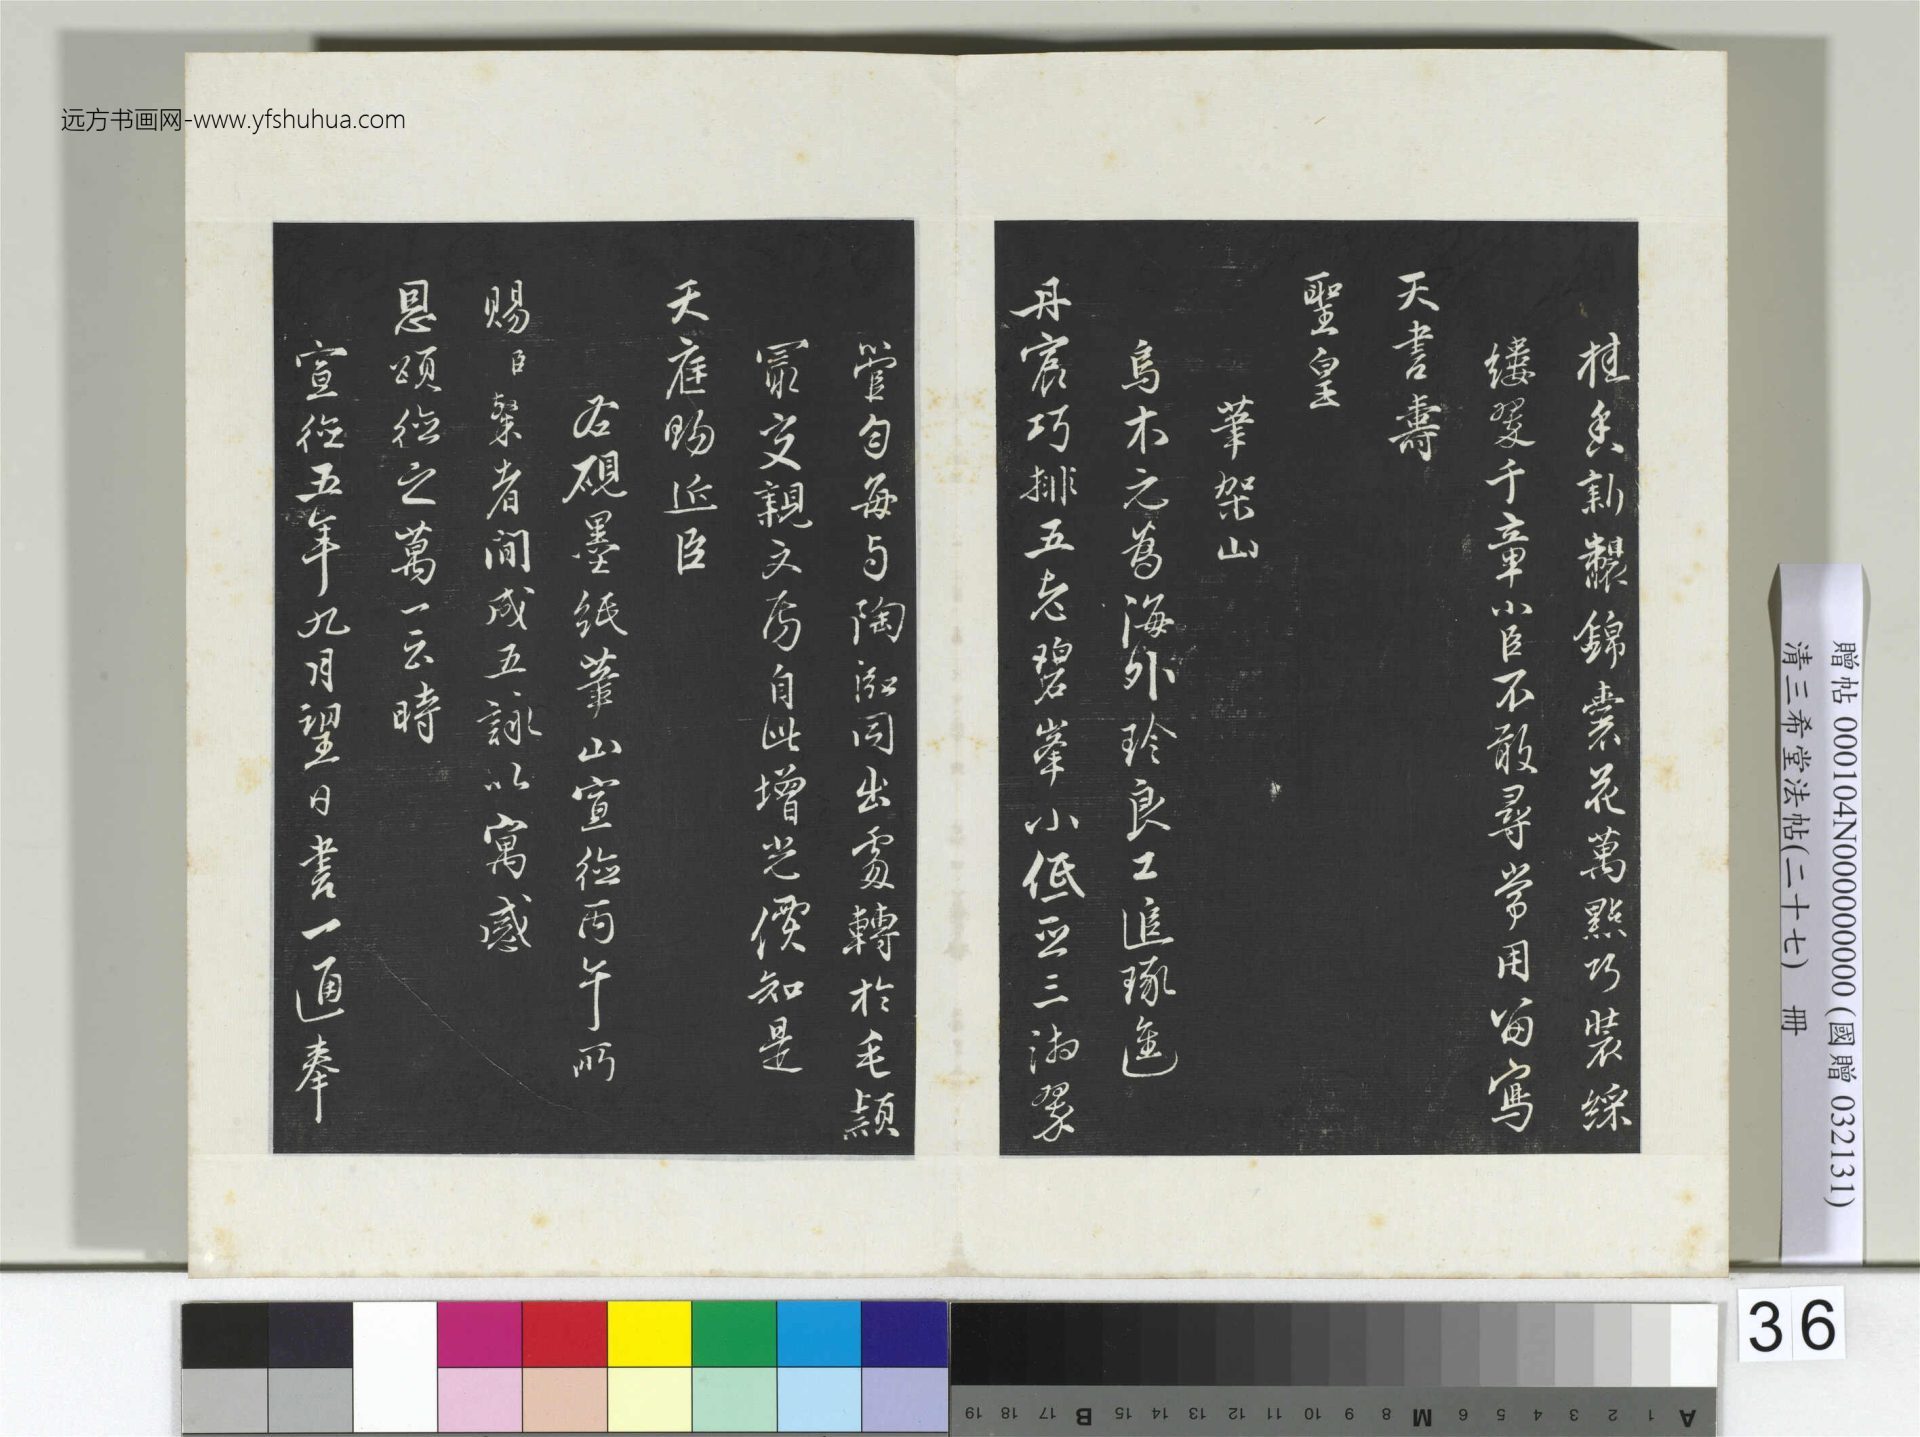 远方书画网-www.yfshuhua.com
桂香新製錦囊花萬點巧裝綵
縷翠千章小臣不敢尋常用留寫
天書壽
聖皇
筆架山
烏木元為海外珍良工追琢進
丹宸巧排五老碧峯小低亞三湘翠
管自每与陶泓同出處轉於毛穎
最交親文房自此增光價知是
天庭賜近臣
右硯墨紙筆山宣德丙午所
賜臣粲者間成五詠以寓感
恩頌德之萬一云時
宣德五年九月望日書一通奉
贈帖 000104N000000000 (國贈 032131)
清三希堂法帖(二十七) 冊
36
A 1 2 3 4 5 6 M 8 9 10 11 12 13 14 15 B 17 18 19